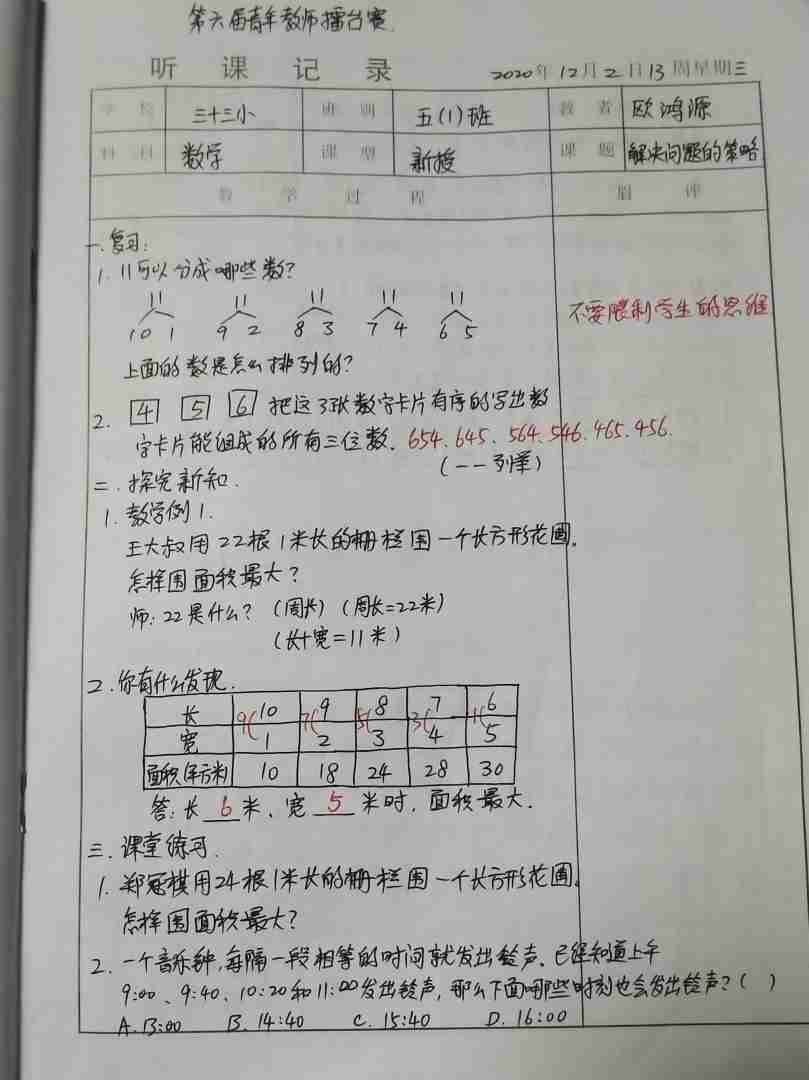 第六届青年教师擂台赛
听 课 记 录 2020年12月2日13周星期三
学 校 三十三小 班 别 五(1)班 教 者 欧鸿源
科 目 数学 课 型 新授 课 题 解决问题的策略
教 学 过 程 眉 评
一.复习:
1. 11可以分成哪些数?
11 11 11 11 11
10 1 9 2 8 3 7 4 6 5
不要限制学生的思维
上面的数是怎么排列的?
2. 4 5 6 把这3张数字卡片有序的写出数
字卡片能组成的所有三位数. 654. 645. 564. 546. 465. 456.
(一一列举)
二. 探究新知.
1. 教学例1.
王大叔用22根1米长的栅栏围一个长方形花圃.
怎样围面积最大?
师: 22是什么? (周长) (周长=22米)
(长+宽=11米)
2. 你有什么发现.
长 9( 10 7( 9 5( 8 3( 7 1( 6
宽 1 2 3 4 5
面积(平方米) 10 18 24 28 30
答: 长 6 米、宽 5 米时, 面积最大.
三. 课堂练习.
1. 郑冠棋用24根1米长的栅栏围一个长方形花圃.
怎样围面积最大?
2. 一个音乐钟,每隔一段相等的时间就发出铃声、已经知道上午
9:00、9:40、10:20和11:00发出铃声, 那么下面哪些时刻也会发出铃声? ( )
A. 13:00 B. 14:40 C. 15:40 D. 16:00